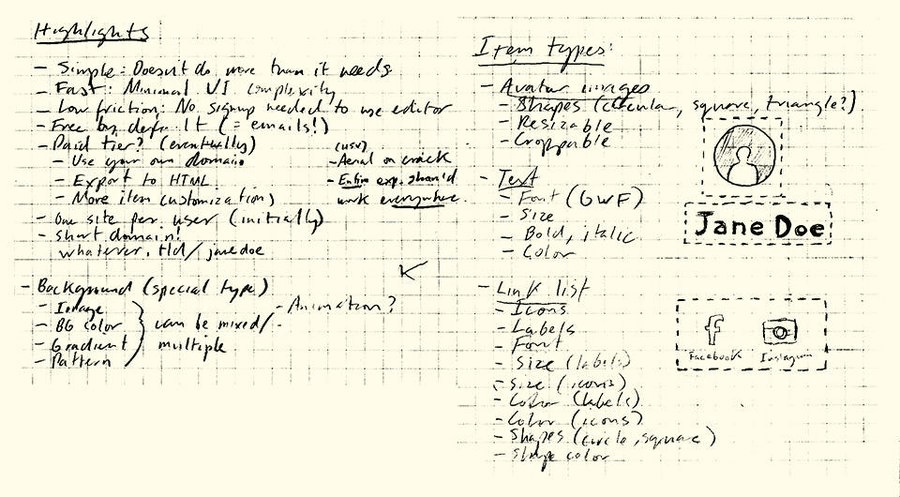 Highlights
- Simple: Doesn't do more than it needs
- Fast: Minimal UI complexity
- Low friction: No signup needed to use editor
- Free by default (= emails!)
- Paid tier? (eventually)
- Use your own domain
- Export to HTML
- More item customization)
- One site per user (initially)
- short domain!
whatever.tld/janedoe
- Aerial on crack
- Entire exp. should
work everywhere.
- Background (special type)
- Image
- BG color
- Gradient
- Pattern
can be mixed/
multiple
- Animation?
-
Item types:
- Avatar images
- Shapes (circular, square, triangle?)
- Resizable
- Croppable
- Text
- Font (GWF)
- Size
- Bold, italic
- Color
Jane Doe
- Link list
- Icons
- Labels
- Font
- Size (labels)
- Size (icons)
- Color (labels)
- Color (icons)
- Shapes (circle, square)
- Shape color
f
Facebook Instagram